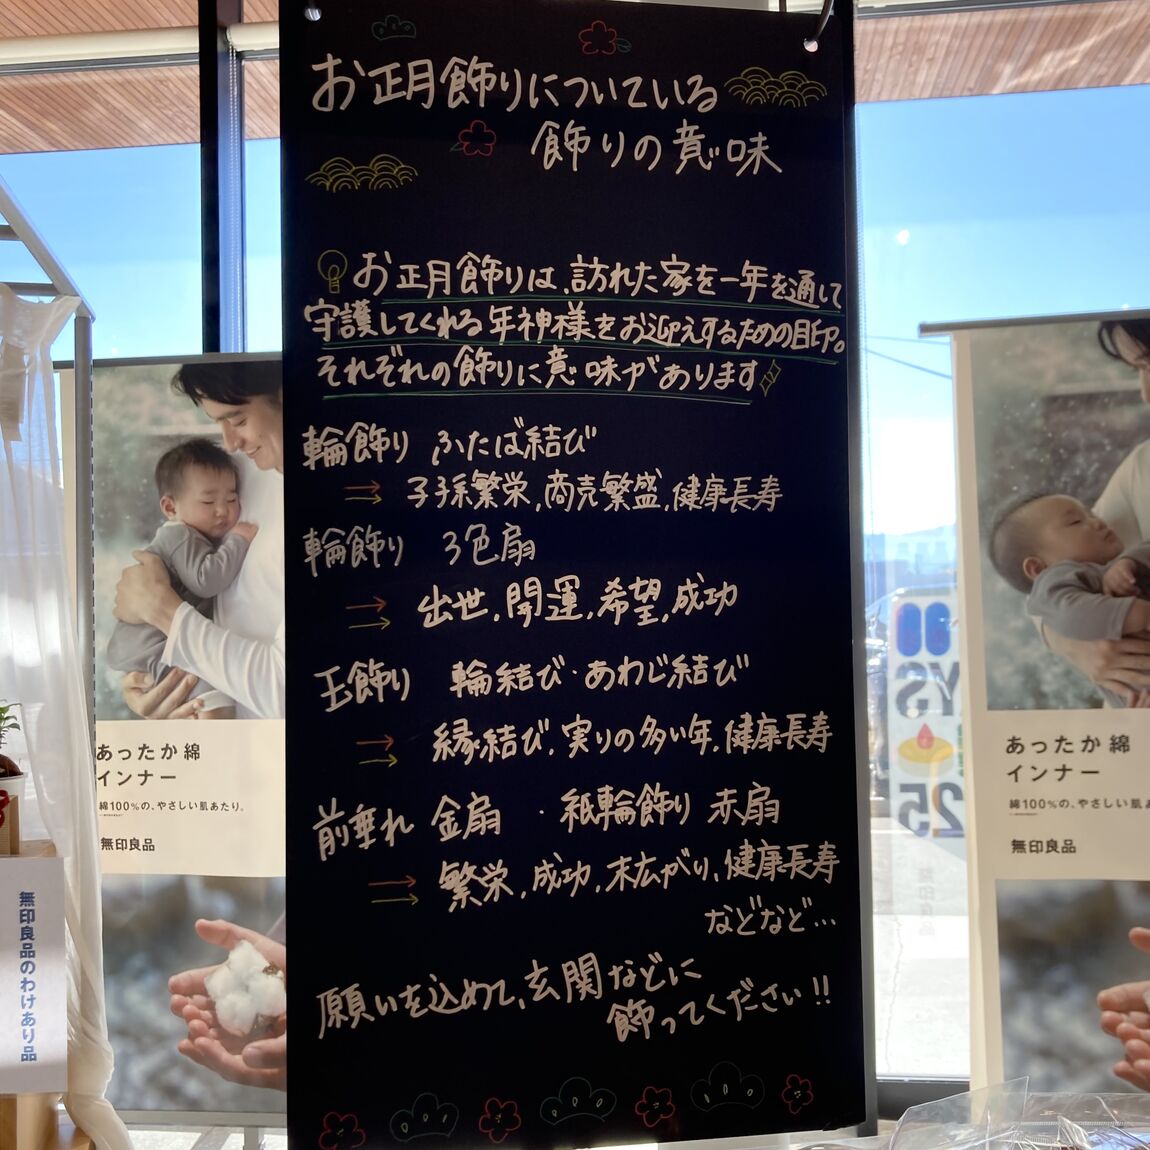 お正月飾りについている
飾りの意味
お正月飾りは、訪れた家を一年を通して
守護してくれる年神様をお迎えするための目印。
それぞれの飾りに意味があります
輪飾り ふたば結び
→ 子孫繁栄、商売繁盛、健康長寿
輪飾り 3色扇
→ 出世、開運、希望、成功
玉飾り 輪結び・あわじ結び
→ 縁結び、実りの多い年、健康長寿
前垂れ 金扇 ・紙輪飾り 赤扇
→ 繁栄、成功、末広がり、健康長寿
などなど…
願いを込めて、玄関などに
飾ってください!!
あったか綿
インナー
綿100%の、やさしい肌あたり。
無印良品
無印良品のわけあり品
あったか綿
インナー
綿100%の、やさしい肌
無印良品